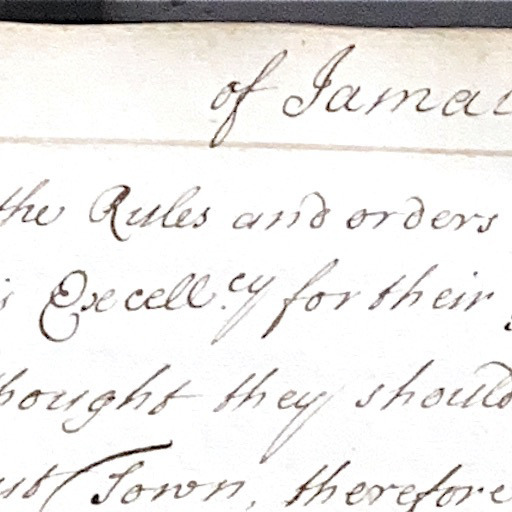 of Jamai
the Rules and orders
s Excell.cy for their
hought they should
ut Town, therefore